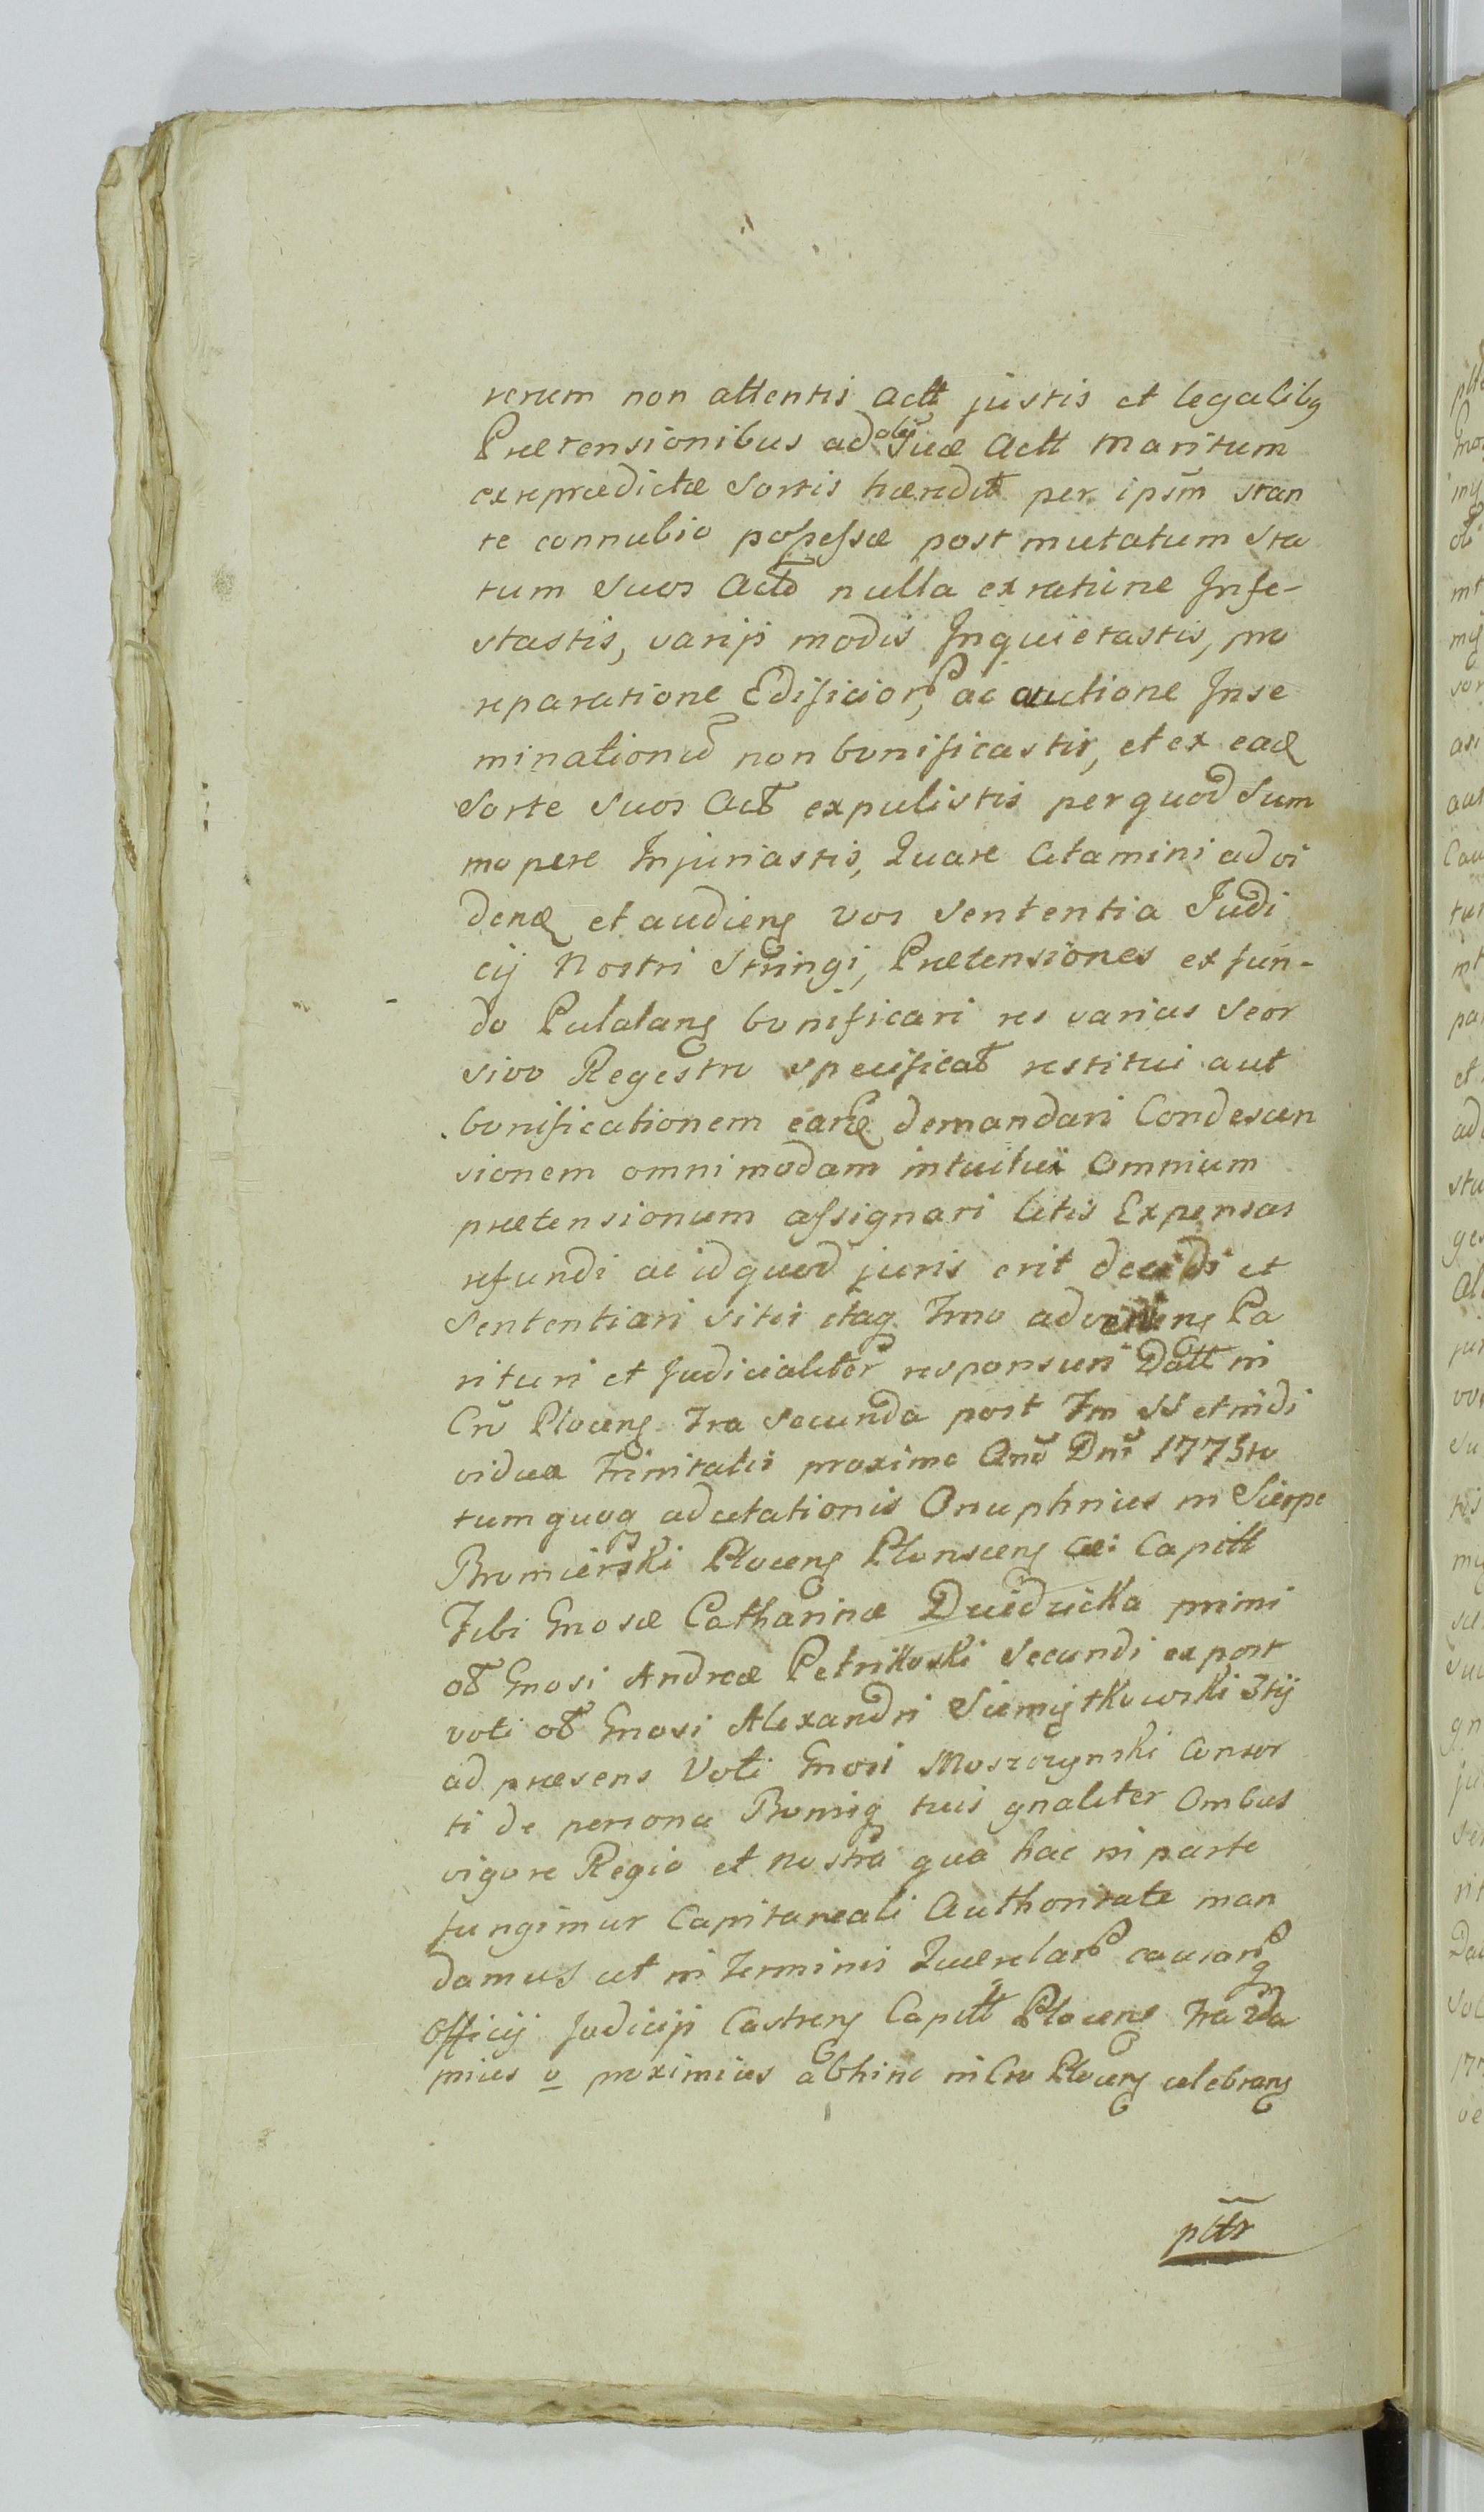 rerum non attentis Actt justis et legalibq
Prætensionibus ad olij suæ Actt Maritum
ex re prædictæ Sortis hæredit per ipsm stan
te connubio possessæ post mutatum sta
tum suos Actt nulla ex ratione Infe-
stastis, varijs modis Inquietastis, pro
reparatione Edificior, ac auctione Inse
minationu non bonificastis, et ex ead
Sorte suos Act expulistis per quod sum
mopere Injuriastis, Quare Citamini ad vi
dend et audieng vos sententia Judi
cij Nostri Stringi, Prætensiones ex fun-
do Pulalang bonificari res varias seor
sivo Regestro specificat restitui aut
bonificationem earu demandari Condescen
sionem omnimodam intuitui Omnium
prætensionum assignari litis Expensas
refundi ac id quod juris erit decidi et
Sententiari sitis itaq Tmo advenieng Pa
rituri et Judicialiter responsuri Datt in
Crō Ploceng Fra Secunda post Fm SS et indi
viduæ Trinitatis proxime Anō Dnī 1775to
tum quoq adcitationis Onuphrius in Sierpc
Bromierski Ploceng Plonsceng &c: Capitt
Tibi Gnosæ Catharinæ Duiedzicka primi
ot Gnosi Andreæ Petrikoski Secundi ex post
voti ot Gnosi Alexandri Siemiątkowski 3tij
ad præsens Voti Gnosi Moszczynski Consor
ti de persona Bonisq tuis gnaliter Ombus
vigore Regia et nostra qua hac in parte
fungimur Capitaneali Authoritate man
damus ut in Terminis Querelar causarq
Officij Judicij Castreng Capitt Ploceng Fra 2da
mius v proximius abhinc in Crō Ploceng celebrang
pttr